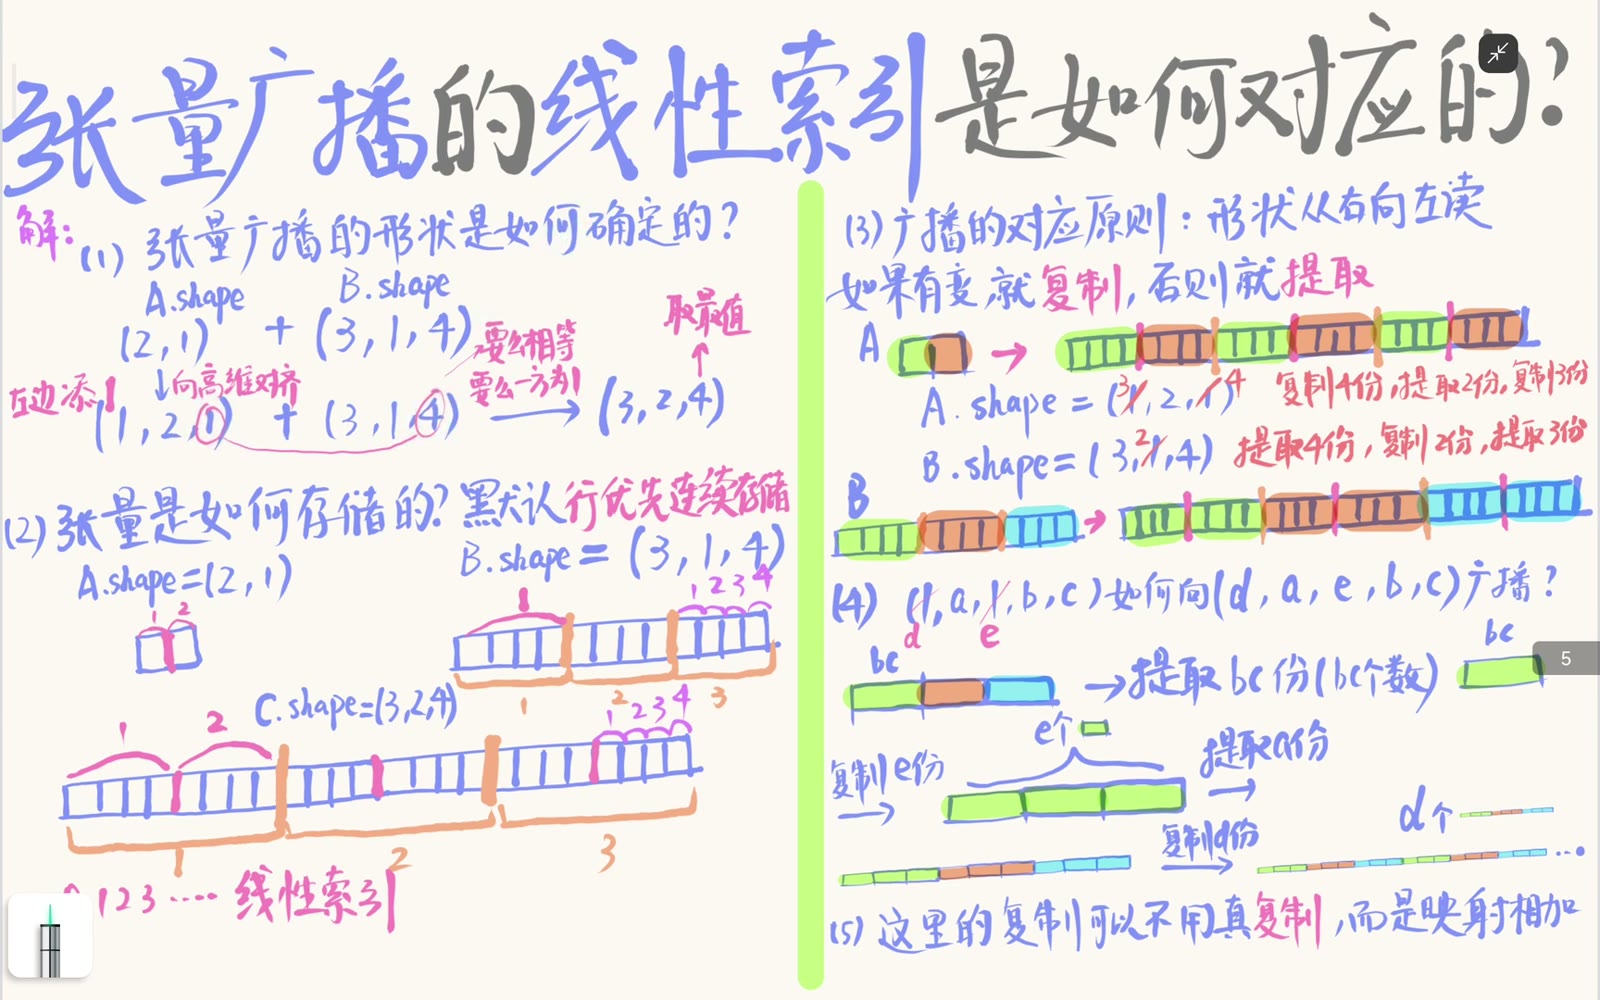 张量广播的线性索引是如何对应的?
解:
(1) 张量广播的形状是如何确定的?
A.shape
B.shape
(2,1) + (3,1,4)
要么相等
要么一方为1
取最值
左边添1
向高维对齐
(1,2,1) + (3,1,4) → (3,2,4)
(2) 张量是如何存储的? 默认行优先连续存储
A.shape=(2,1)
B.shape=(3,1,4)
1 2
1
1 2 3 4
1 2 3
C.shape=(3,2,4)
1 2
1 2 3 4
1 2 3
0 1 2 3 ···· 线性索引
(3) 广播的对应原则: 形状从右向左读
如果有变,就复制,否则就提取
A →
A.shape=(1,2,1)
3 4
复制4份,提取2份,复制3份
B.shape=(3,1,4)
2
提取4份,复制2份,提取3份
B →
(4) (1,a,1,b,c)如何向(d,a,e,b,c)广播?
d e
bc
→提取bc份(bc个数)
bc
5
e个
复制e份
→
提取a份
→
复制d份
→
d个
···
(5) 这里的复制可以不用真复制,而是映射相加